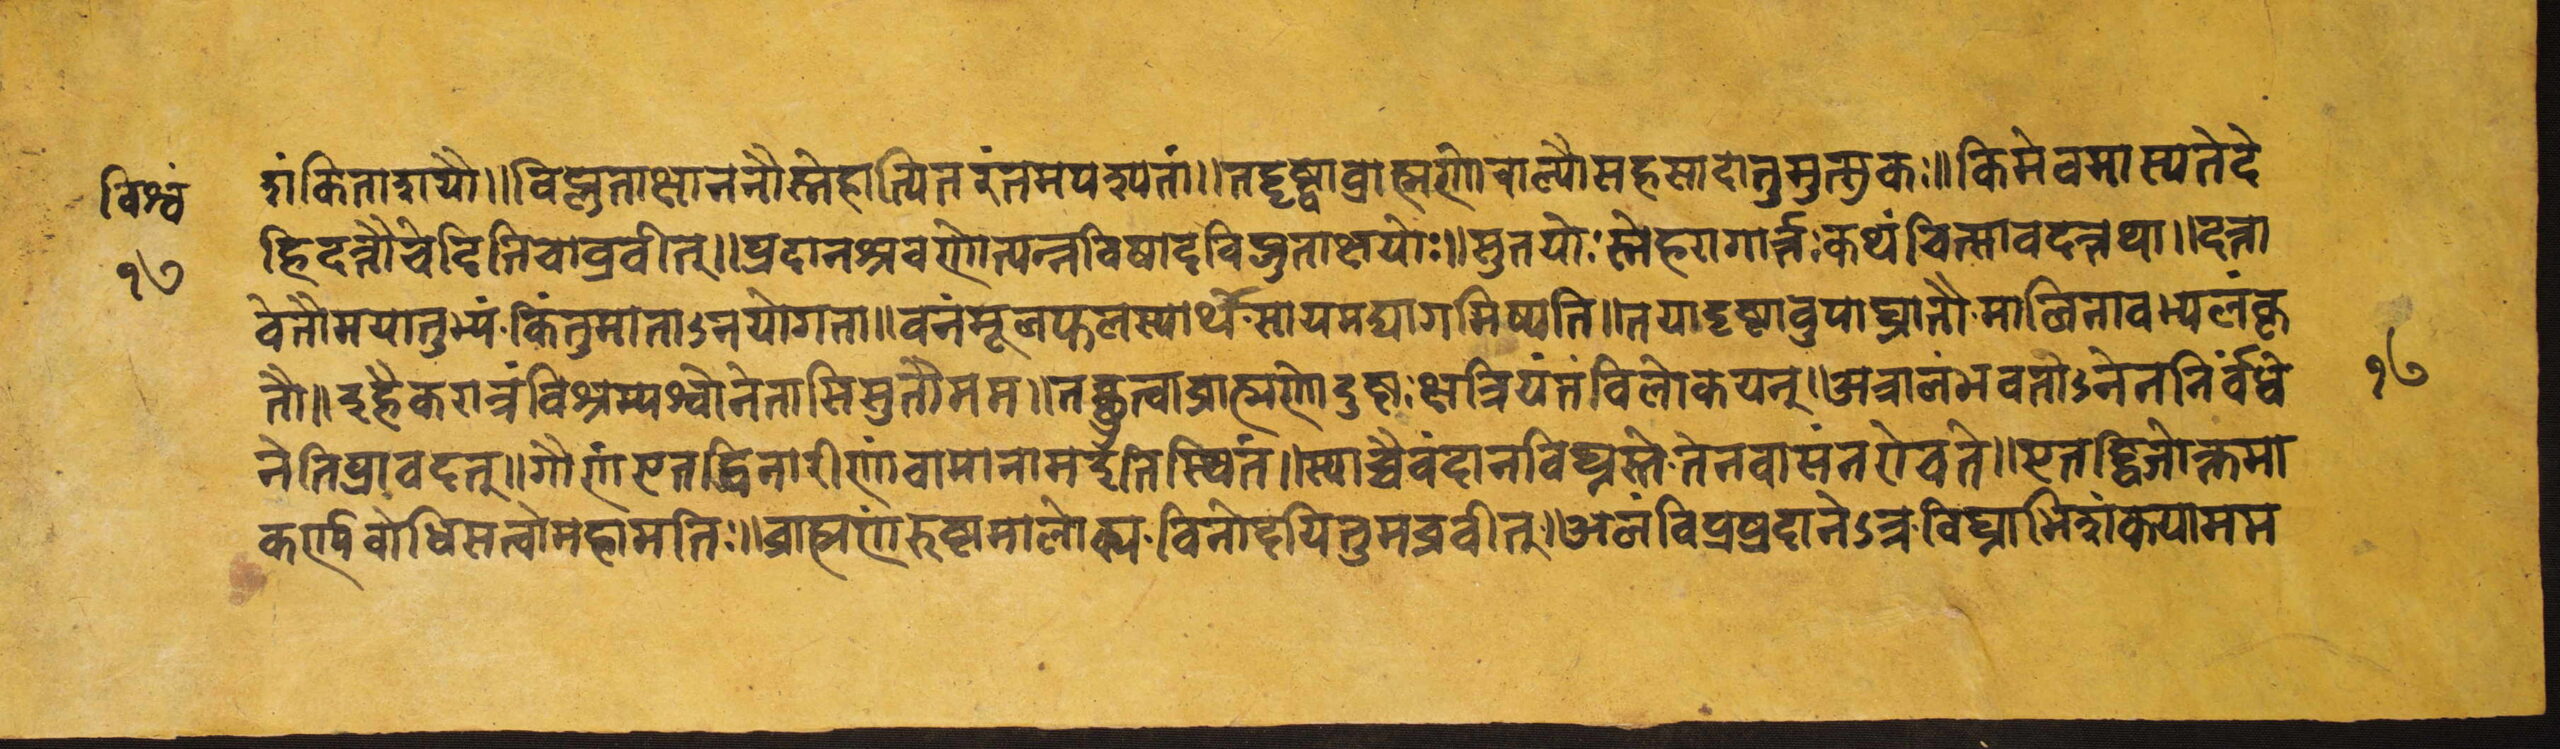 विश्वं
१७
शंकिताशयौ॥विप्लुताक्षाननौस्नेहात्पितरंतमपश्यतां॥तद्दृष्ट्वाब्राह्मणोबाल्यौसहसादातुमुत्सुकः॥किमेवमास्यतेदे
हिदत्तौचेदितिचाब्रवीत्॥प्रदानश्रवणोत्पन्नविषादविप्लुताक्षयोः॥सुतयोःस्नेहरागार्त्तःकथंचित्सावदत्तथा॥दत्ता
वेतौमयातुभ्यं किंतुमाताऽनयोर्गता॥वनंमूलफलस्यार्थे सायमद्यागमिष्यति॥तयादृष्टावुपाघ्रातौ मालिनावभ्यलंकृ
तौ॥इहैकरात्रंविश्रम्यश्वोनेतासिसुतौमम॥तच्छ्रुत्वाब्राह्मणोदुष्टःक्षत्रियंतंविलोकयन्॥अत्रालंभवतोऽनेननिर्वंधे
नेतिप्रावदत्॥गौणंएतद्धिनारीणांवामानामइतिस्थितं॥स्याच्चैवंदानविघ्नस्ते तेनवासंनरोचते॥एतद्द्विजोक्तमा
कर्ण्यबोधिसत्वोमहामतिः॥ब्राह्मणंरुष्टमालोक्य विनोदयितुमब्रवीत्॥अलंविप्रप्रदानेऽत्र विघ्नाभिशंकयामम
१७